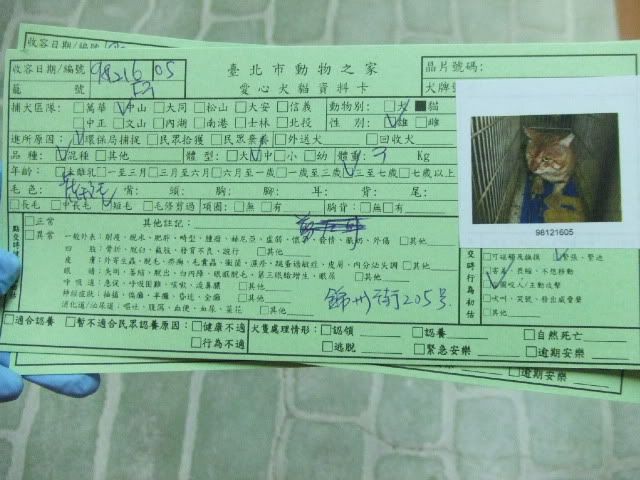 收容日期/編號
收容日期/編號 981216 05 臺北市動物之家 晶片號碼:
籠號 愛心犬貓資料卡 犬牌號
捕犬區隊: □萬華 中山 □大同 □松山 □大安 □信義 動物別: □犬 ■貓
□中正 □文山 □內湖 □南港 □士林 □北投 性別: 雄 □雌
進所原因: 環保局捕捉 □民眾拾獲 □民眾棄養 □外送犬 □回收犬
品種: 混種 □其他 體型: □大 中 □小 □幼 體重: Kg
年齡: □未離乳 □一至三月 □三月至六月 □六月至一歲 □一歲至三歲 三至七歲 □七歲以上
毛色: 背: 頭: 胸: 腳: 耳: 背: 尾:
□長毛 □中長毛 短毛 □毛修剪過 項圈: □無 □有 胸背: □無 □有
98121605
□正常 其他註記:
□異常 一般外表: 削瘦、脫水、肥胖、畸型、腫瘤、赫尼亞、虛弱、懷孕、發情、脹奶、外傷 □其他
四肢: 骨折、脫臼、截肢、發育不良、跛行 □其他
皮膚: 外寄生蟲、脫毛、疥癬、毛囊蟲、黴菌、濕疹、跳蚤過敏症、皮屑、內分泌失調 □其他
眼睛: 失明、萎縮、脫出、白內障、眼瞼脫毛、第三眼瞼增生、眼屎 □其他
呼吸道: 急促、呼吸困難、咳嗽、流鼻膿 □其他
神經症狀: 抽搐、偏癱、半癱、昏迷、全癱 □其他
消化道/泌尿道: 嘔吐、腹瀉、血便、血尿、菜花 □其他
錦州街205号
□可碰觸及撫摸 緊張、警進
□害羞、畏縮、不想移動
圖咬人/主動攻擊
□吠叫、哭號、發出威脅聲
□其他
□適合認養 □暫不適合民眾認養原因: □健康不適 犬隻處理情形: □認領 □認養 □自然死亡
□行為不適 □逃脫 □緊急安樂 □逾期安樂
□逾期安樂